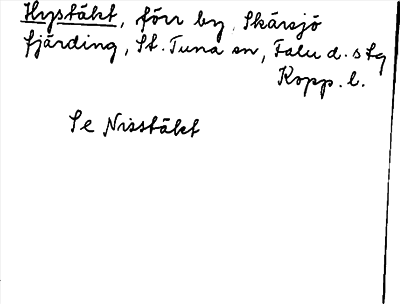 Hystäkt, förr by, Skärsjö
fjärding, St. Tuna sn, Falu d. s tg
Kopp. l.
Se Nisstäkt